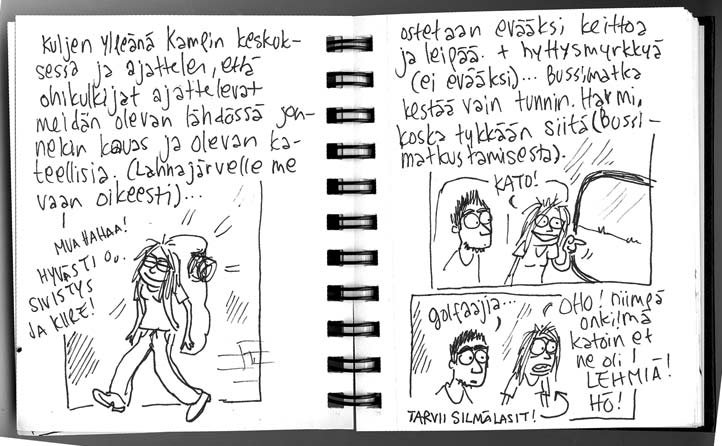 Kuljen ylpeänä Kampin keskuk-
sessa ja ajattelen, että
ohikulkijat ajattelevat
meidän olevan lähdössä jon-
nekin kauas ja olevan ka-
teellisia. (Lahnajärvelle me
vaan oikeesti)...
MUAHAHAA!
HYVÄSTI
SIVISTYS
JA KIIRE!
ostetaan evääksi keittoa
ja leipää. + hyttysmyrkkyä
(ei evääksi)... Bussimatka
kestää vain tunnin. Harmi,
koska tykkään siitä (Bussi-
matkustamisesta).
KATO!
golfaajia...
OHO! niimpä
onki! mä
katoin et
ne oli
LEHMIÄ!
HÖ!
TARVII SILMÄLASIT!